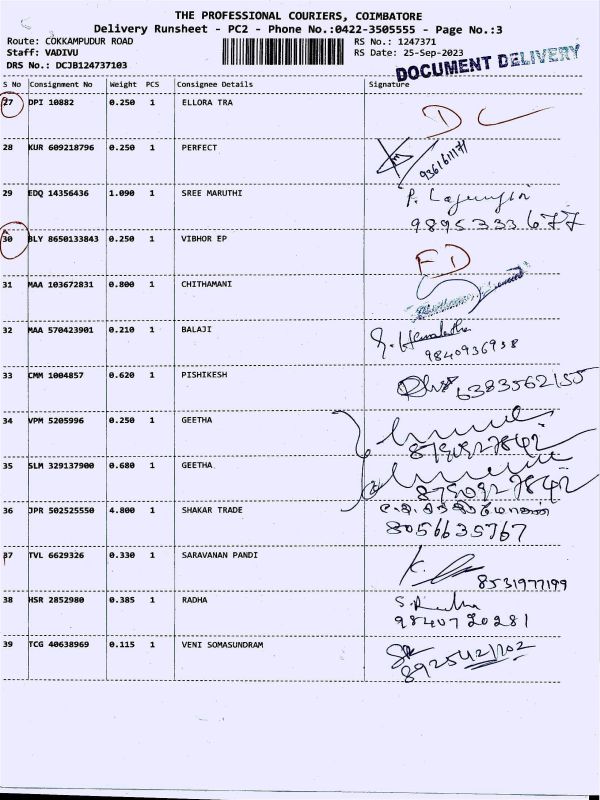 THE PROFESSIONAL COURIERS, COIMBATORE
Delivery Runsheet - PC2 - Phone No.:0422-3505555 - Page No.:3
Route: COKKAMPUDUR ROAD RS No.: 1247371
Staff: VADIVU RS Date: 25-Sep-2023
DRS No.: DCJB124737103
DOCUMENT DELIVERY
S No Consignment No Weight PCS Consignee Details Signature
27 DPI 10882 0.250 1 ELLORA TRA
28 KUR 609218796 0.250 1 PERFECT
29 EDQ 14356436 1.090 1 SREE MARUTHI
9895333677
30 BLY 8650133843 0.250 1 VIBHOR EP
31 MAA 103672831 0.800 1 CHITHAMANI
32 MAA 570423901 0.210 1 BALAJI
9840936938
33 CMM 1004857 0.620 1 PISHIKESH
6383562155
34 VPM 5205996 0.250 1 GEETHA
35 SLM 329137900 0.680 1 GEETHA
36 JPR 502525550 4.800 1 SHAKAR TRADE
8056635767
37 TVL 6629326 0.330 1 SARAVANAN PANDI
8531977199
38 HSR 2852980 0.385 1 RADHA
S. Radha
9840720281
39 TCG 40638969 0.115 1 VENI SOMASUNDRAM
8925421202